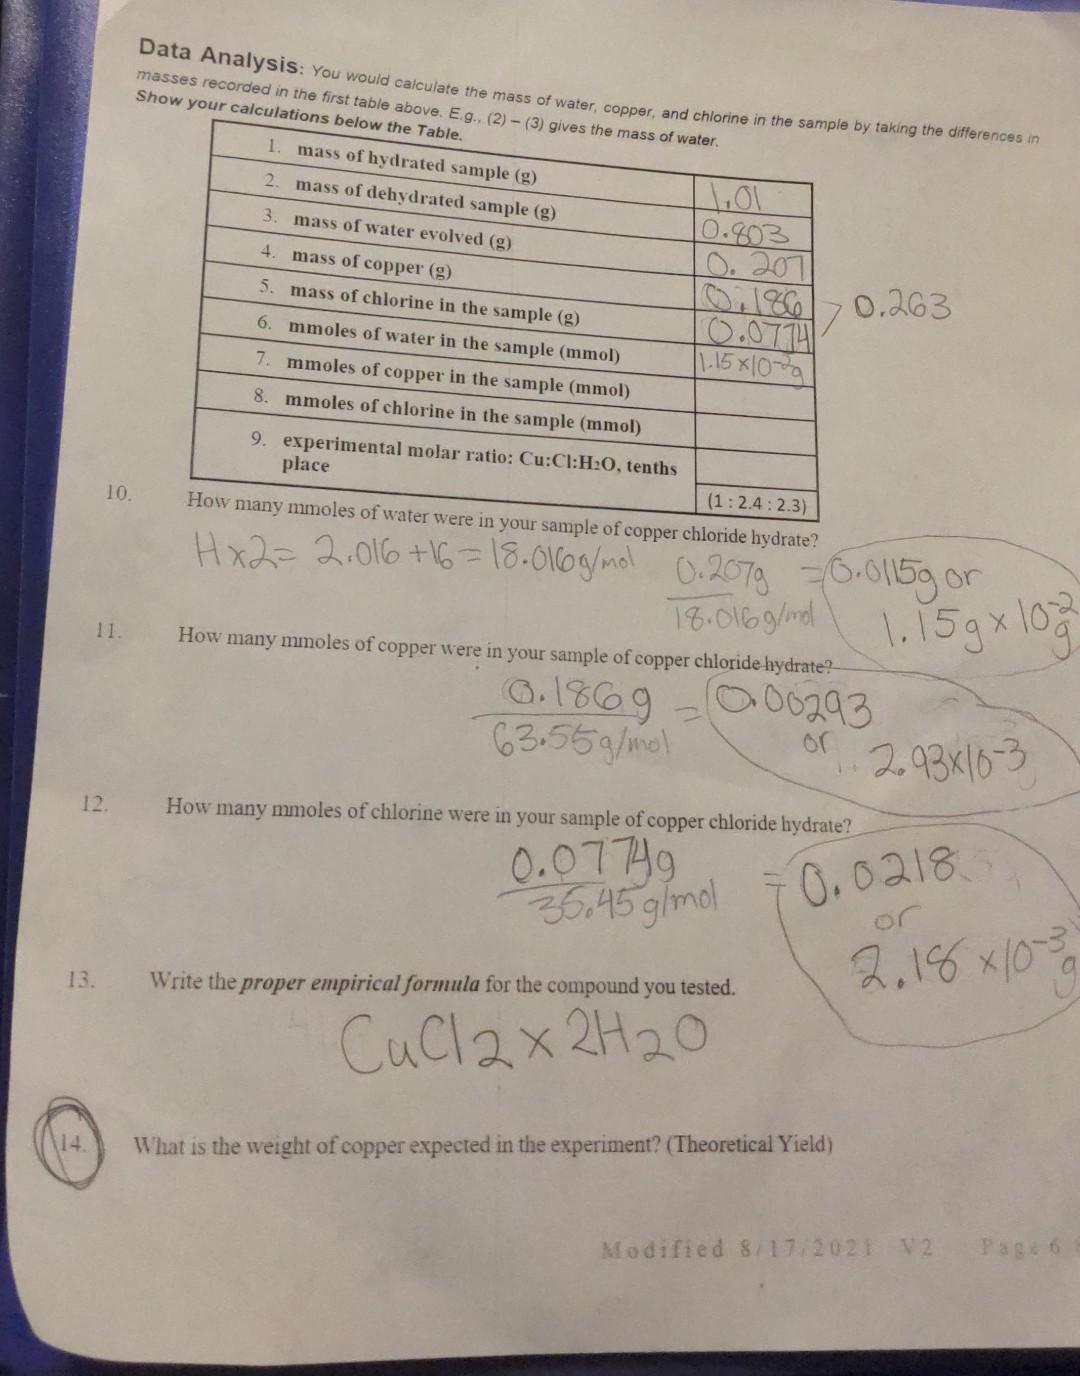 Data Analysis: You would calculate the mass of water, copper, and chlorine in the sample by taking the differences in
masses recorded in the first table above. E.g., (2) – (3) gives the mass of water.
Show your calculations below the Table.
1. mass of hydrated sample (g) 1.01
2. mass of dehydrated sample (g) 0.803
3. mass of water evolved (g) 0.207
4. mass of copper (g) 0.186
5. mass of chlorine in the sample (g) 0.0774
> 0.263
6. mmoles of water in the sample (mmol) 1.15 x 10-2 g
7. mmoles of copper in the sample (mmol)
8. mmoles of chlorine in the sample (mmol)
9. experimental molar ratio: Cu:Cl:H2O, tenths
place
(1 : 2.4 : 2.3)
10. How many mmoles of water were in your sample of copper chloride hydrate?
Hx2= 2.016 +16 = 18.016g/mol 0.207g = 0.0115g or
18.016g/mol 1.15g x 10-2 g
11. How many mmoles of copper were in your sample of copper chloride hydrate?
0.186g = 0.00293
63.55g/mol or 2.93x10-3
12. How many mmoles of chlorine were in your sample of copper chloride hydrate?
0.0774g = 0.0218
35.45 g/mol or
2.18 x10-3 g
13. Write the proper empirical formula for the compound you tested.
CuCl2 x 2H2O
14. What is the weight of copper expected in the experiment? (Theoretical Yield)
Modified 8/17/2021 V2 Page 6